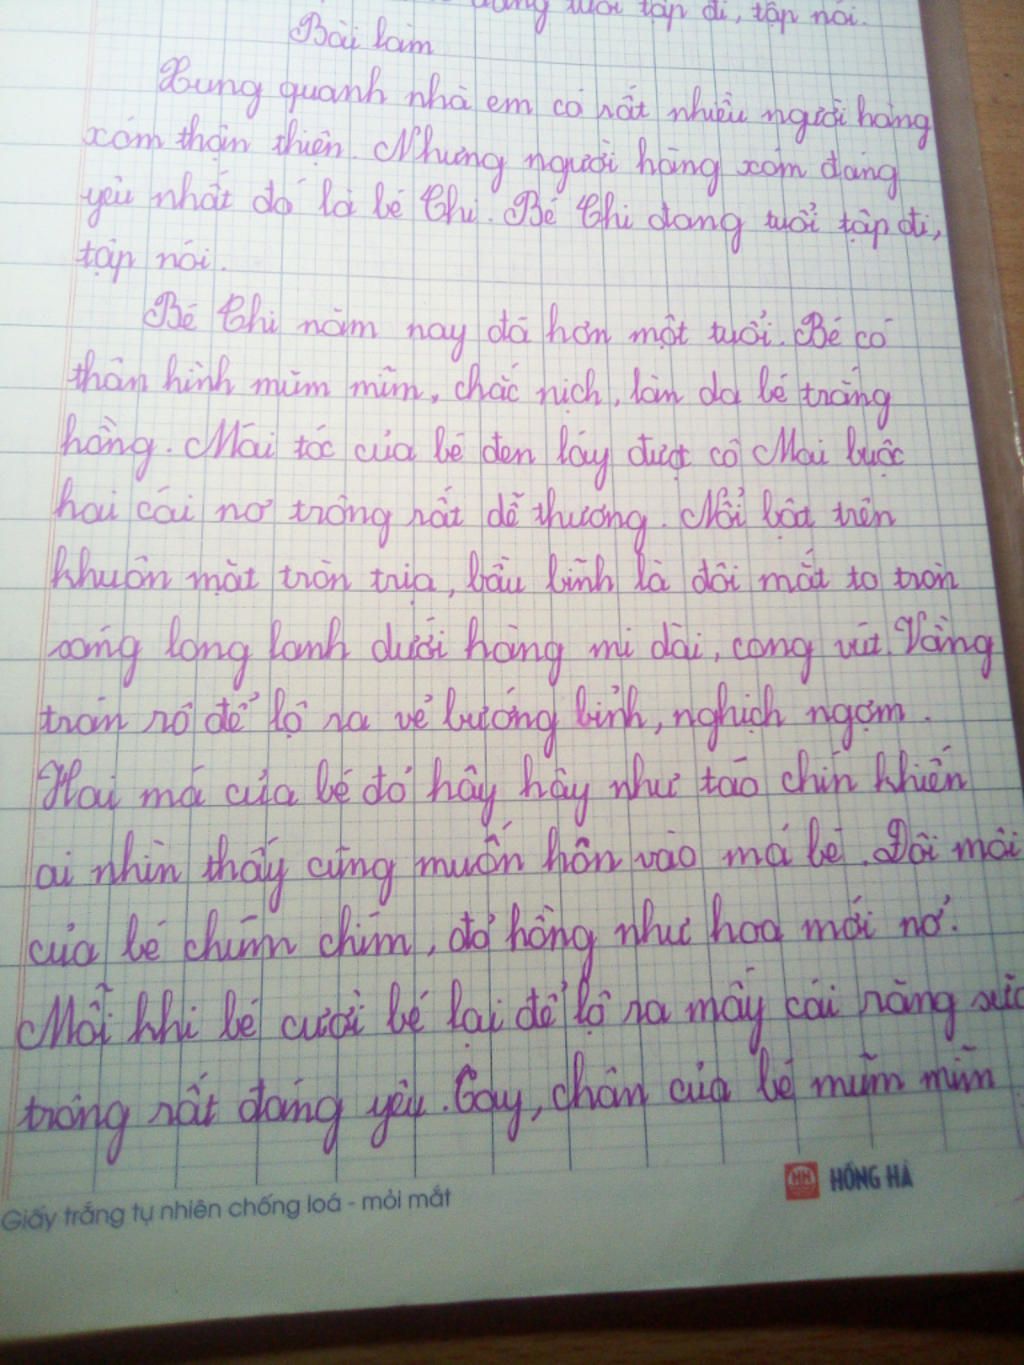 đang tuổi tập đi, tập nói.
Bài làm
Xung quanh nhà em có rất nhiều người hàng
xóm thận thiện. Nhưng người hàng xóm đáng
yêu nhất đó là bé Chi. Bé Chi đang tuổi tập đi,
tập nói.
Bé Chi năm nay đã hơn một tuổi. Bé có
thân hình mũm mĩm, chắc nịch, làn da bé trắng
hồng. Mái tóc của bé đen láy được cô Mai buộc
hai cái nơ trông rất dễ thương. Nổi bật trên
khuôn mặt tròn trịa, bầu bĩnh là đôi mắt to tròn
sáng long lanh dưới hàng mi dài, cong vút. Vầng
trán rô để lộ ra vẻ bướng bỉnh, nghịch ngợm.
Hai má của bé đỏ hây hây như táo chín khiến
ai nhìn thấy cũng muốn hôn vào má bé. Đôi môi
của bé chúm chím, đỏ hồng như hoa mới nở.
Mỗi khi bé cười bé lại để lộ ra mấy cái răng sữa
trông rất đáng yêu. Tay, chân của bé mũm mĩm
Giấy trắng tự nhiên chống loá - mỏi mắt
HH HỒNG HÀ